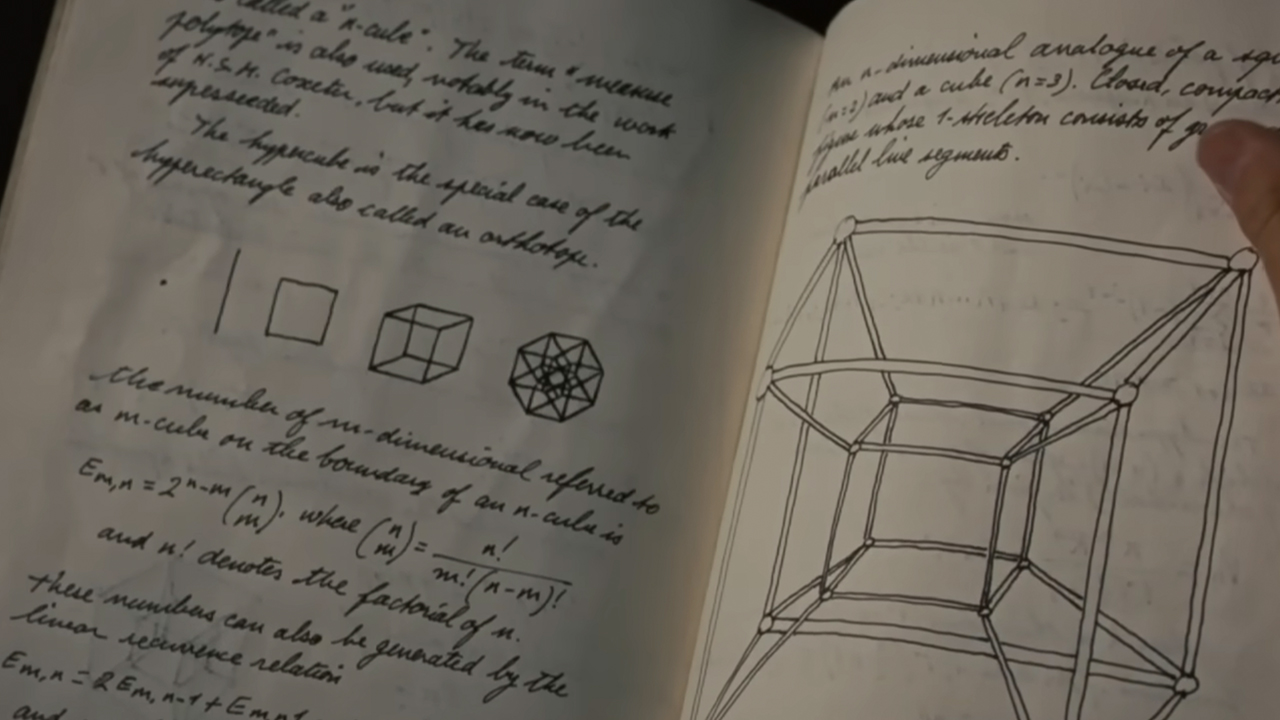 called a "n-cube". The term "measure
polytope" is also used, notably in the work
of H.S.M. Coxeter, but it has now been
superseded.
The hypercube is the special case of the
hyperectangle also called an orthotope.
the number of m-dimensional referred to
as m-cube on the boundary of an n-cube is
Em,n = 2^n-m (n m). where (n m) = n! / m!(n-m)!
and n! denotes the factorial of n.
these numbers can also be generated by the
linear recurrence relation
Em,n = 2Em,n-1 + Em
and
An n-dimensional analogue of a squ
(n=2) and a cube (n=3). Closed, compact
figure whose 1-skeleton consists of
parallel line segments.